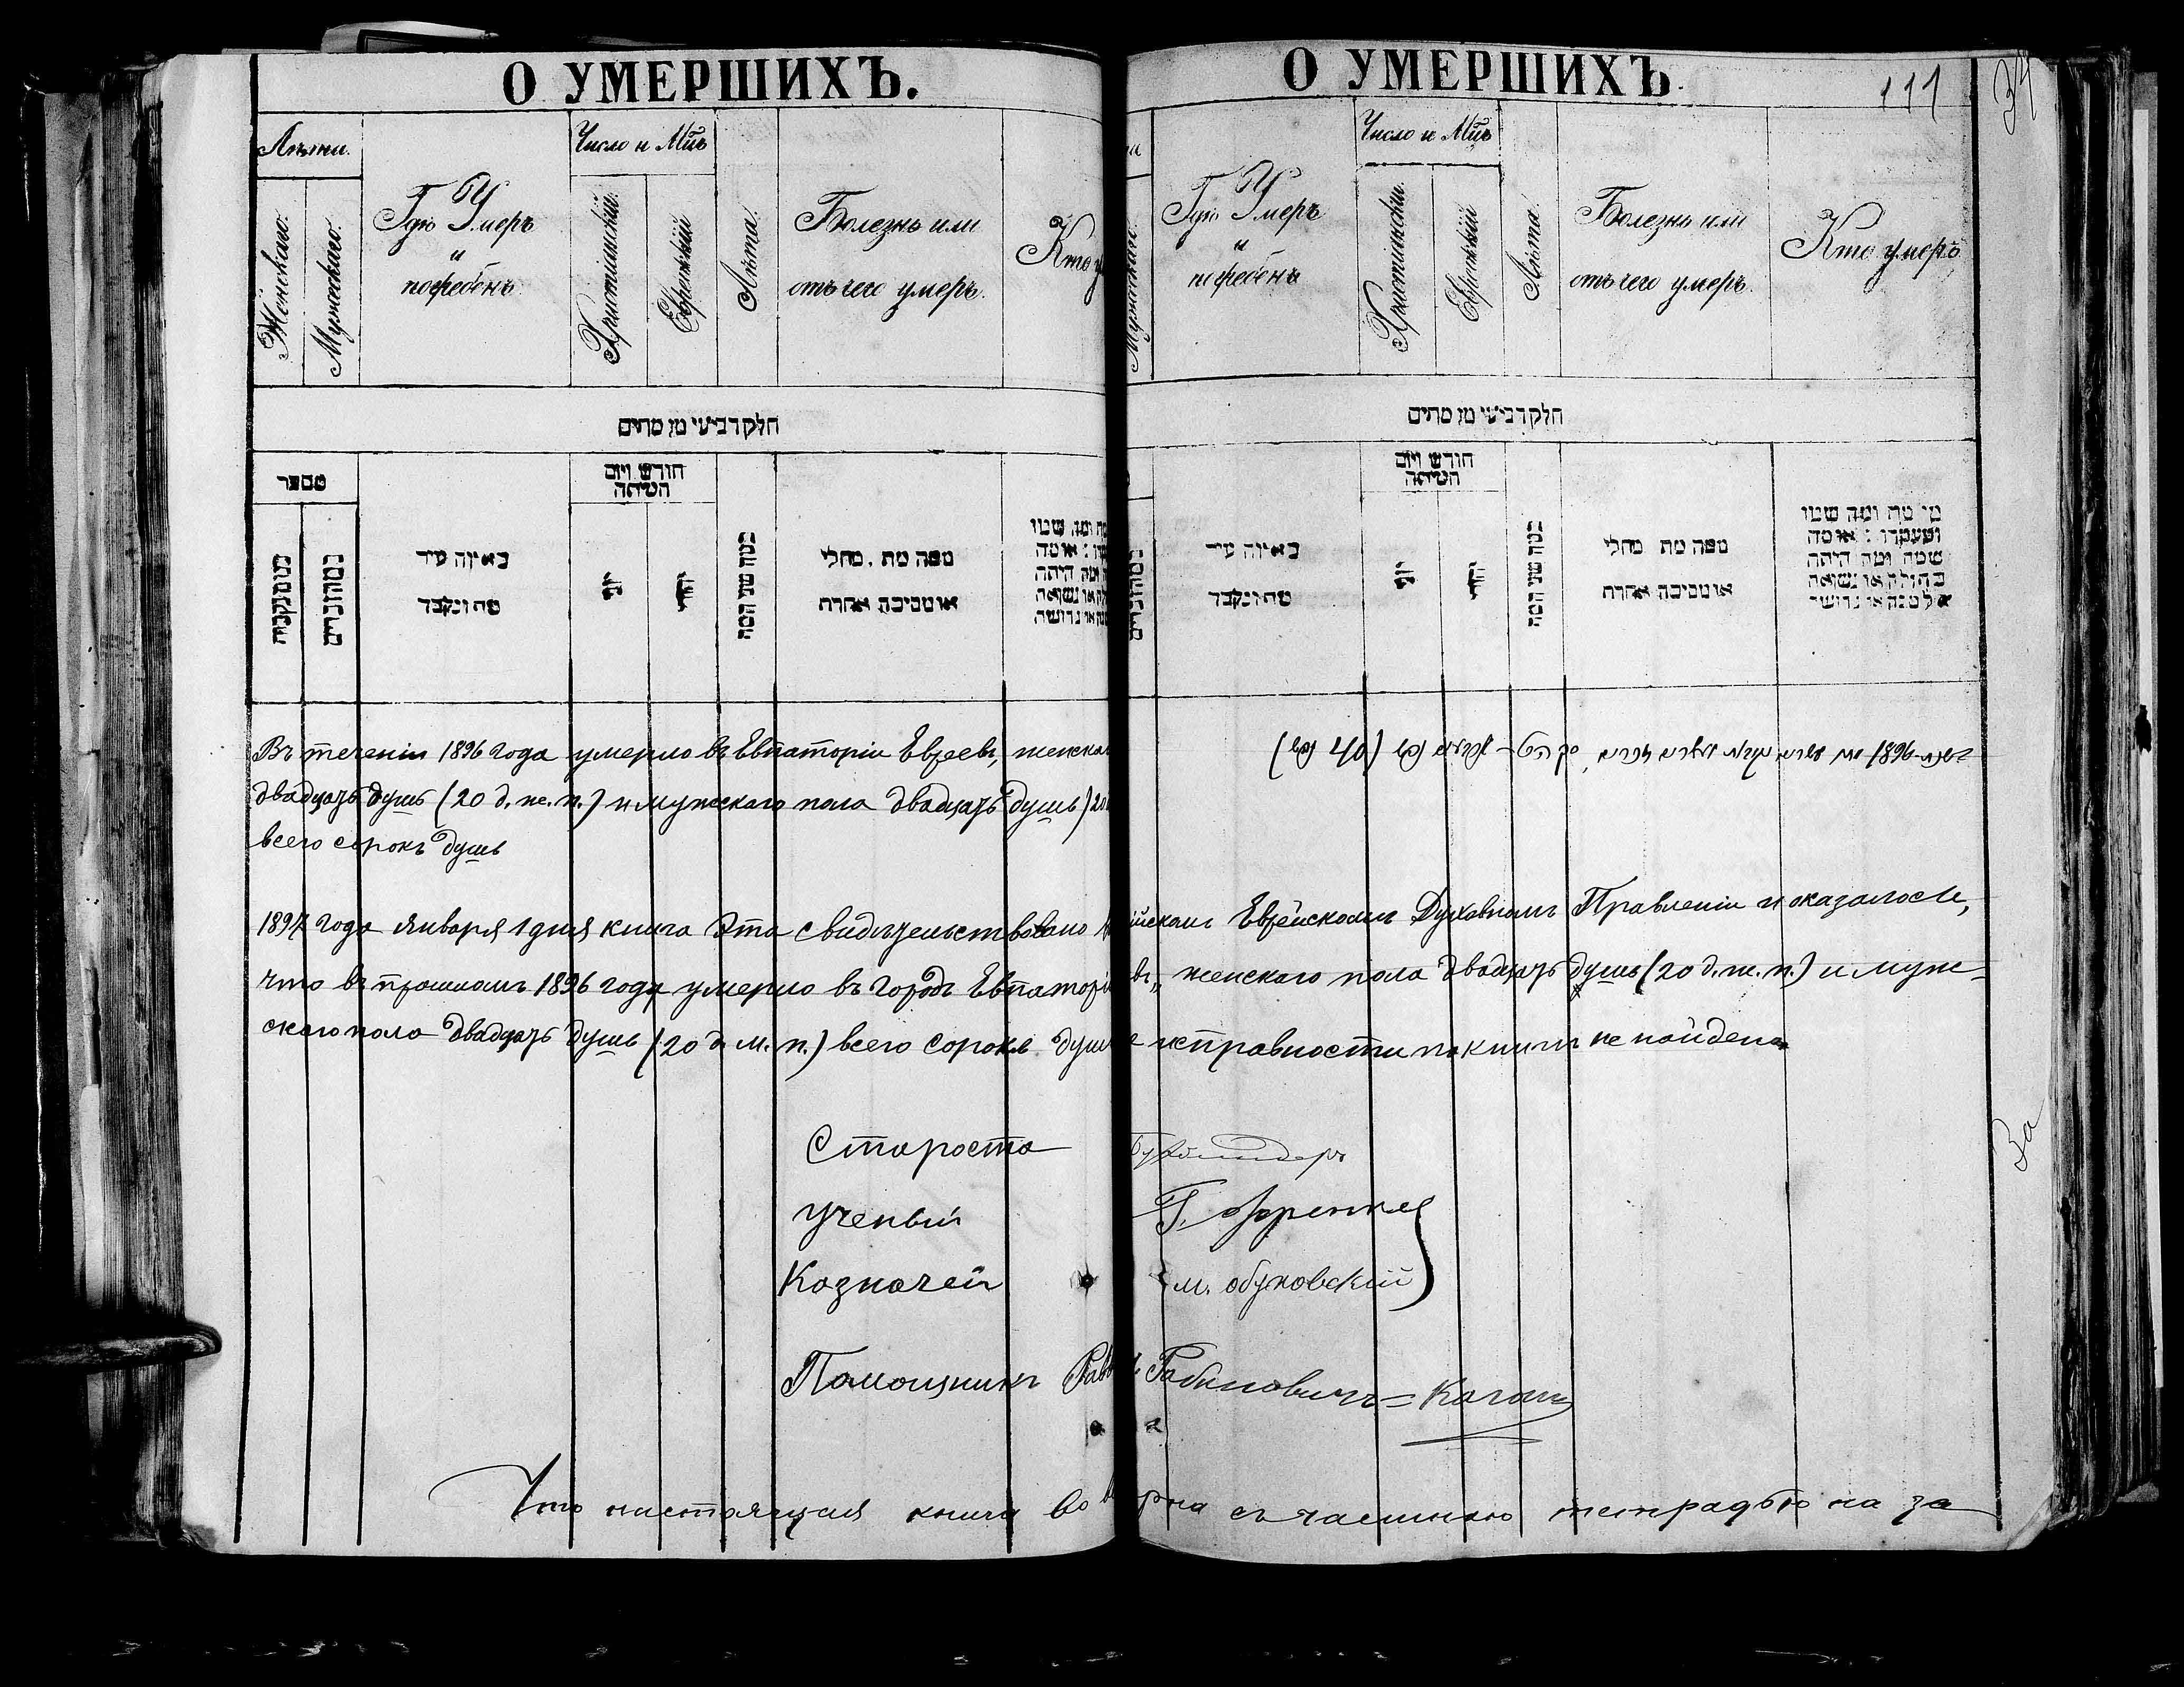 О УМЕРШИХЪ.
Лѣты.
Женскаго.
Мужескаго.
Гдѣ Умеръ
и
погребенъ
Число и Мць
Христіанскій.
Еврейскій
Лѣта.
Болезнь или
отъ чего умеръ.
חלק רביעי מן מתים
מספר
חודש ויום
המיתה
באיזה עיר
מת ונקבר
כמה שני המת
ממה מת . מחלי
או מסיבה אחרת
Въ теченіи 1896 года умерло въ Евпаторіи Евреевъ, женска
двадцать душъ (20 д. ж. п.) и мужескаго пола двадцать душъ) 20
всего сорокъ душъ
1897 года Января 1 дня книга эта свидѣтельствовано
что въ прошломъ 1896 году умерло въ городѣ Евпаторі
скаго пола двадцать душъ (20 д. м. п.) всего сорокъ душъ
Староста
Ученый
Казначей
Помощникъ Равв
Что настоящая книга во
О УМЕРШИХЪ.
111
34
Мужескаго.
Гдѣ Умеръ
и
погребенъ
Число и Мць
Христіанскій.
Еврейскій
Лѣта.
Болезнь или
отъ чего умеръ.
Кто умеръ
חלק רביעי מן מתים
חודש ויום
המיתה
באיזה עיר
מת ונקבר
כמה שני המת
ממה מת מחלי
או מסיבה אחרת
מי מת ומה שמו
ומעמדו : או מה
שמה ומה היתה
בתולה או נשואה
אלמנה או גרושה
1896 (40 נפש)
йскомъ Еврейскомъ Духовномъ Правленіи и оказалось,
въ, женскаго пола двадцать душъ (20 д. ж. п.) и муже-
исправности по книгѣ не найдено
Г. Френкел
М. Обуховскій
Рабиновичъ = Каганъ
рна съ частною тетрадью на за
За